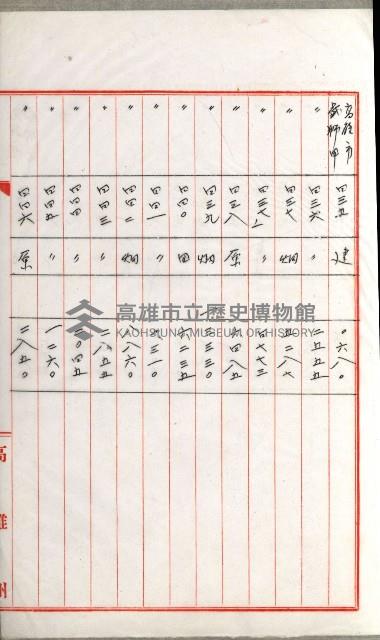 高雄市
前獅甲 四三五 建 〇六八〇
〃 四三六 〃 二五五
〃 四三七 畑 五二八七
〃 四三七ノ一 〃 四七七三
〃 四三八 原 四八五
〃 四三九 畑 三三〇
〃 四四〇 田 六二三五
〃 四四一 〃 三一〇
〃 四四二 畑 八六〇
〃 四四三 〃 二八五五
〃 四四四 〃 二〇四五
〃 四四五 〃 一二六〇
〃 四四六 原 二八五〇
高雄州
高雄市立歷史博物館
KAOHSIUNG MUSEUM OF HISTORY